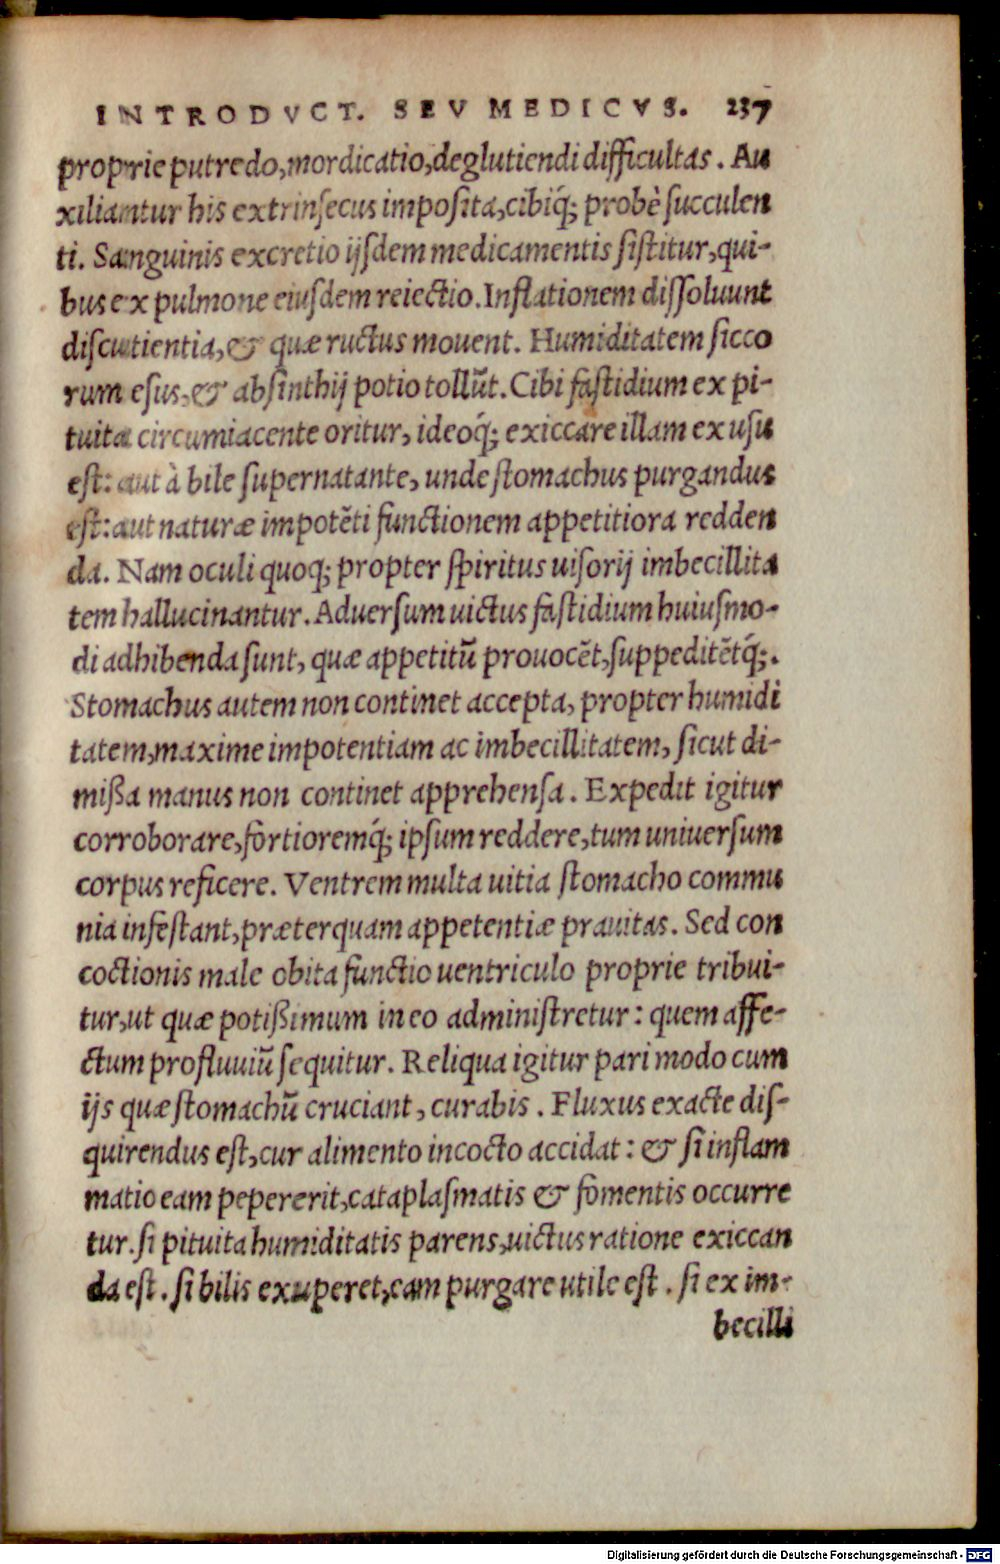 INTRODVCT. SEV MEDICVS. 237
proprie putredo, mordicatio, deglutiendi difficultas. Au
xiliantur his extrinſecus impoſita, cibiq́; probè ſucculen
ti. Sanguinis excretio ijſdem medicamentis ſiſtitur, qui-
bus ex pulmone eiuſdem reiectio. Inflationem diſſoluunt
diſcutientia, & quæ ructus mouent. Humiditatem ſicco
rum eſus, & abſinthij potio tollũt. Cibi faſtidium ex pi-
tuita circumiacente oritur, ideoq́; exiccare illam ex uſu
eſt: aut à bile ſupernatante, unde ſtomachus purgandus
eſt: aut naturæ impotẽti functionem appetitiora redden
da. Nam oculi quoq; propter ſpiritus uiſorij imbecillita
tem hallucinantur. Aduerſum uictus faſtidium huiuſmo-
di adhibenda ſunt, quæ appetitũ prouocẽt, ſuppeditẽtq́;.
Stomachus autem non continet accepta, propter humidi
tatem, maxime impotentiam ac imbecillitatem, ſicut di-
mißa manus non continet apprehenſa. Expedit igitur
corroborare, fortioremq́; ipſum reddere, tum uniuerſum
corpus reficere. Ventrem multa uitia ſtomacho commu
nia infeſtant, præterquam appetentiæ prauitas. Sed con
coctionis male obita functio uentriculo proprie tribui-
tur, ut quæ potißimum in eo adminiſtretur: quem affe-
ctum profluuiũ ſequitur. Reliqua igitur pari modo cum
ijs quæ ſtomachũ cruciant, curabis. Fluxus exacte diſ-
quirendus eſt, cur alimento incocto accidat: & ſi inflam
matio eam pepererit, cataplaſmatis & fomentis occurre
tur. ſi pituita humiditatis parens, uictus ratione exiccan
da eſt. ſi bilis exuperet, eam purgare utile eſt. ſi ex im-
becilli
Digitalisierung gefördert durch die Deutsche Forschungsgemeinschaft - DFG